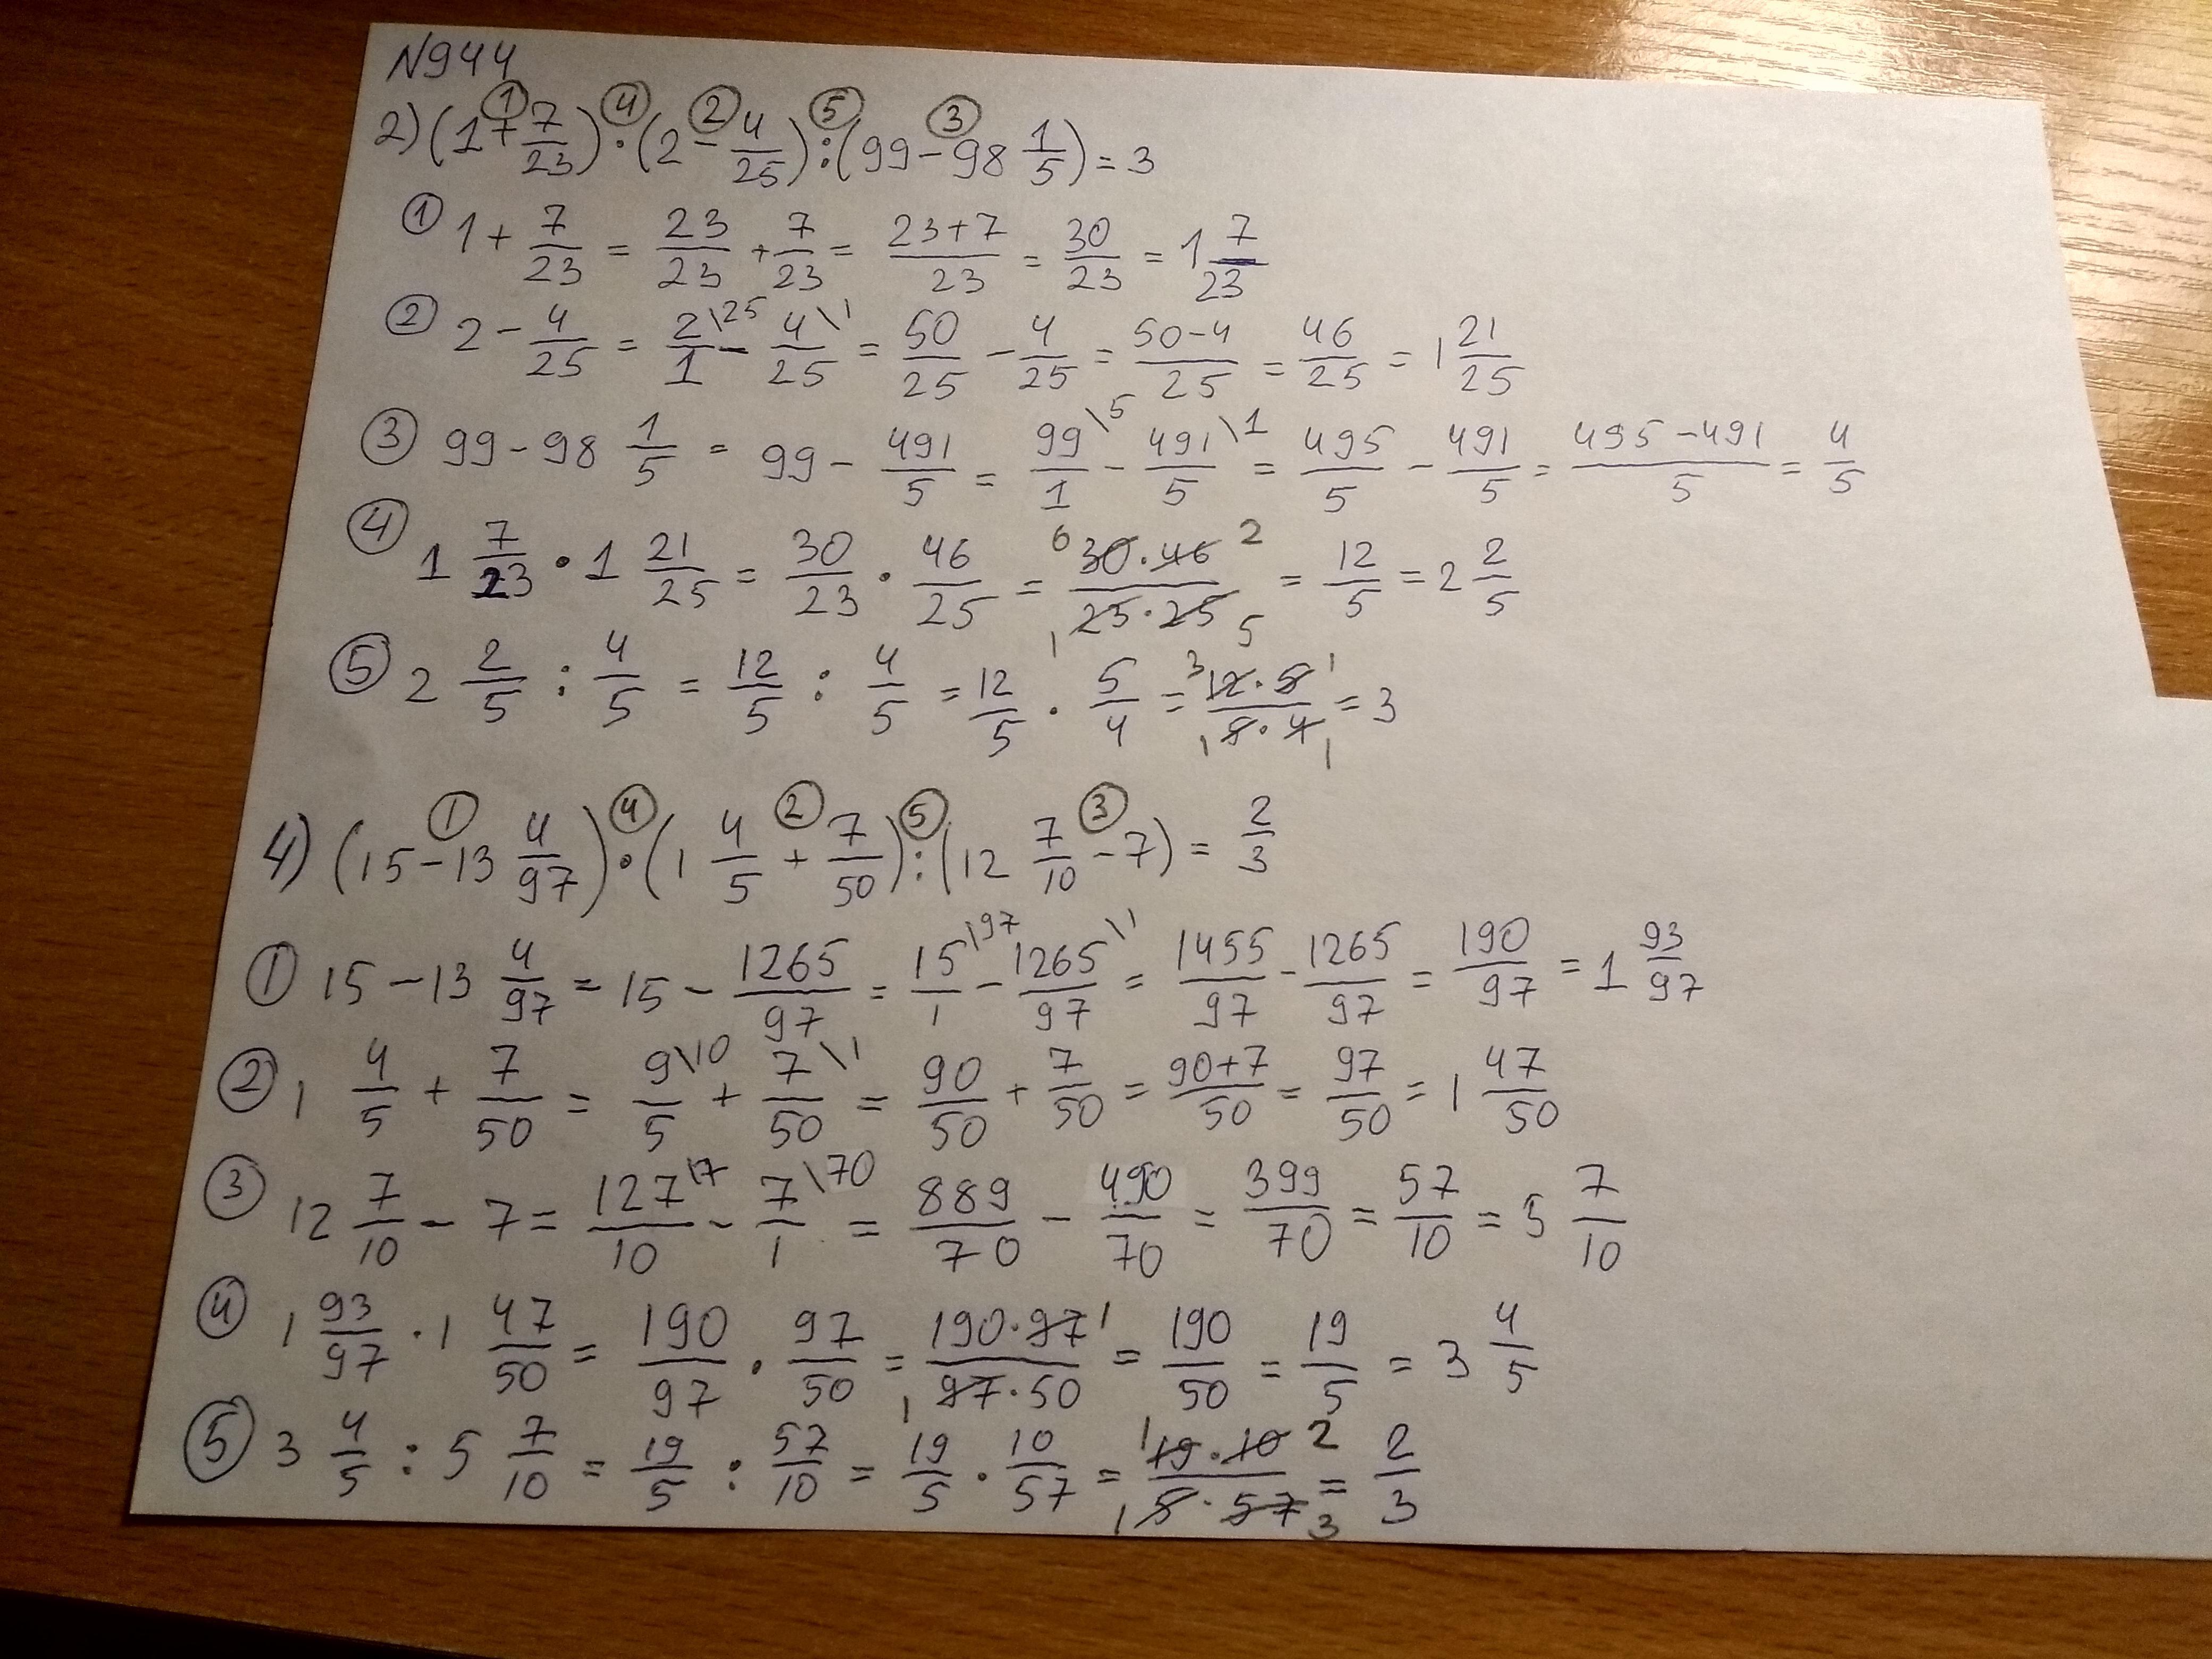 N944
2) (1 + 7/23) · (2 - 4/25) : (99 - 98 1/5) = 3
① ④ ② ⑤ ③
① 1 + 7/23 = 23/23 + 7/23 = (23+7)/23 = 30/23 = 1 7/23
② 2 - 4/25 = 2\25/1 - 4\1/25 = 50/25 - 4/25 = (50-4)/25 = 46/25 = 1 21/25
③ 99 - 98 1/5 = 99 - 491/5 = 99\5/1 - 491\1/5 = 495/5 - 491/5 = (495-491)/5 = 4/5
④ 1 7/23 · 1 21/25 = 30/23 · 46/25 = 6 30·46 2 / 1 23·25 5 = 12/5 = 2 2/5
⑤ 2 2/5 : 4/5 = 12/5 : 4/5 = 12/5 · 5/4 = 3 12·5 1 / 1 5·4 1 = 3
4) (15 - 13 4/97) · (1 4/5 + 7/50) : (12 7/10 - 7) = 2/3
① ④ ② ⑤ ③
① 15 - 13 4/97 = 15 - 1265/97 = 15\97/1 - 1265\1/97 = 1455/97 - 1265/97 = 190/97 = 1 93/97
② 1 4/5 + 7/50 = 9\10/5 + 7\1/50 = 90/50 + 7/50 = (90+7)/50 = 97/50 = 1 47/50
③ 12 7/10 - 7 = 127\7/10 - 7\70/1 = 889/70 - 490/70 = 399/70 = 57/10 = 5 7/10
④ 1 93/97 · 1 47/50 = 190/97 · 97/50 = 190·97 1 / 1 97·50 = 190/50 = 19/5 = 3 4/5
⑤ 3 4/5 : 5 7/10 = 19/5 : 57/10 = 19/5 · 10/57 = 1 19·10 2 / 1 5·57 3 = 2/3